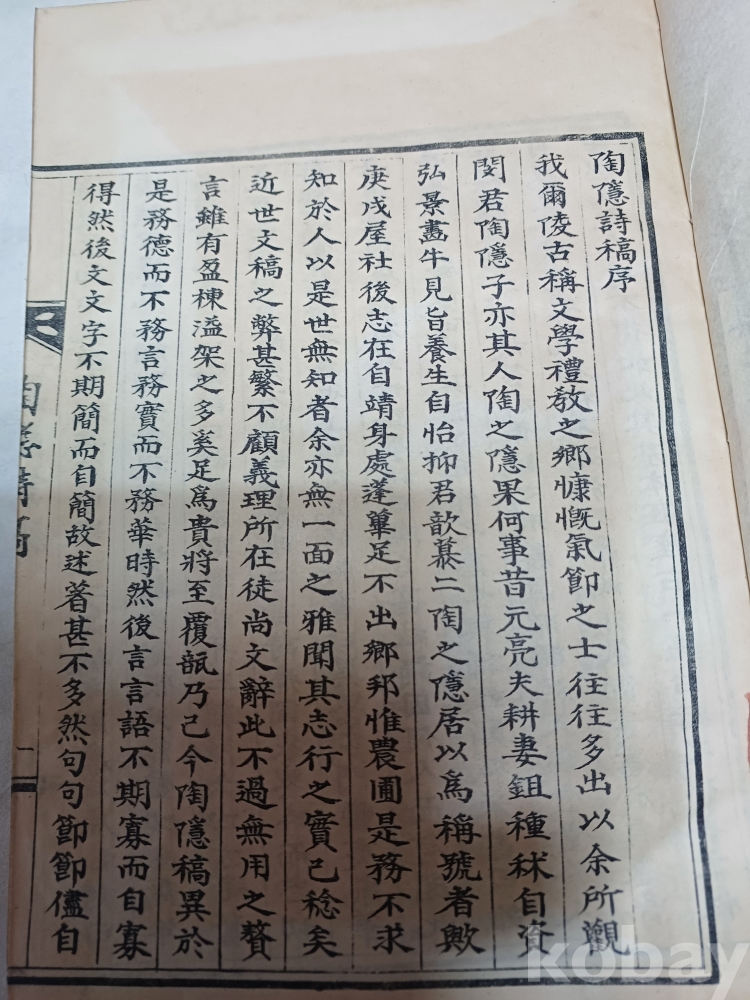 陶隱詩稿序
我爾陵古稱文學禮敎之鄉慷慨氣節之士往往多出以余所觀
閔君陶隱子亦其人陶之隱果何事昔元亮夫耕妻鉏種秫自資
弘景畵牛見旨養生自怡抑君歆慕二陶之隱居以爲稱號者歟
庚戌屋社後志在自靖身處蓬蓽足不出鄉邦惟農圃是務不求
知於人以是世無知者余亦無一面之雅聞其志行之實已稔矣
近世文稿之弊甚繁不顧義理所在徒尚文辭此不過無用之贅
言雖有盈棟溢架之多奚足爲貴將至覆瓿乃已今陶隱稿異於
是務德而不務言務實而不務華時然後言言語不期寡而自寡
得然後文文字不期簡而自簡故述著甚不多然句句節節儘自
陶隱詩稿
一
kobay